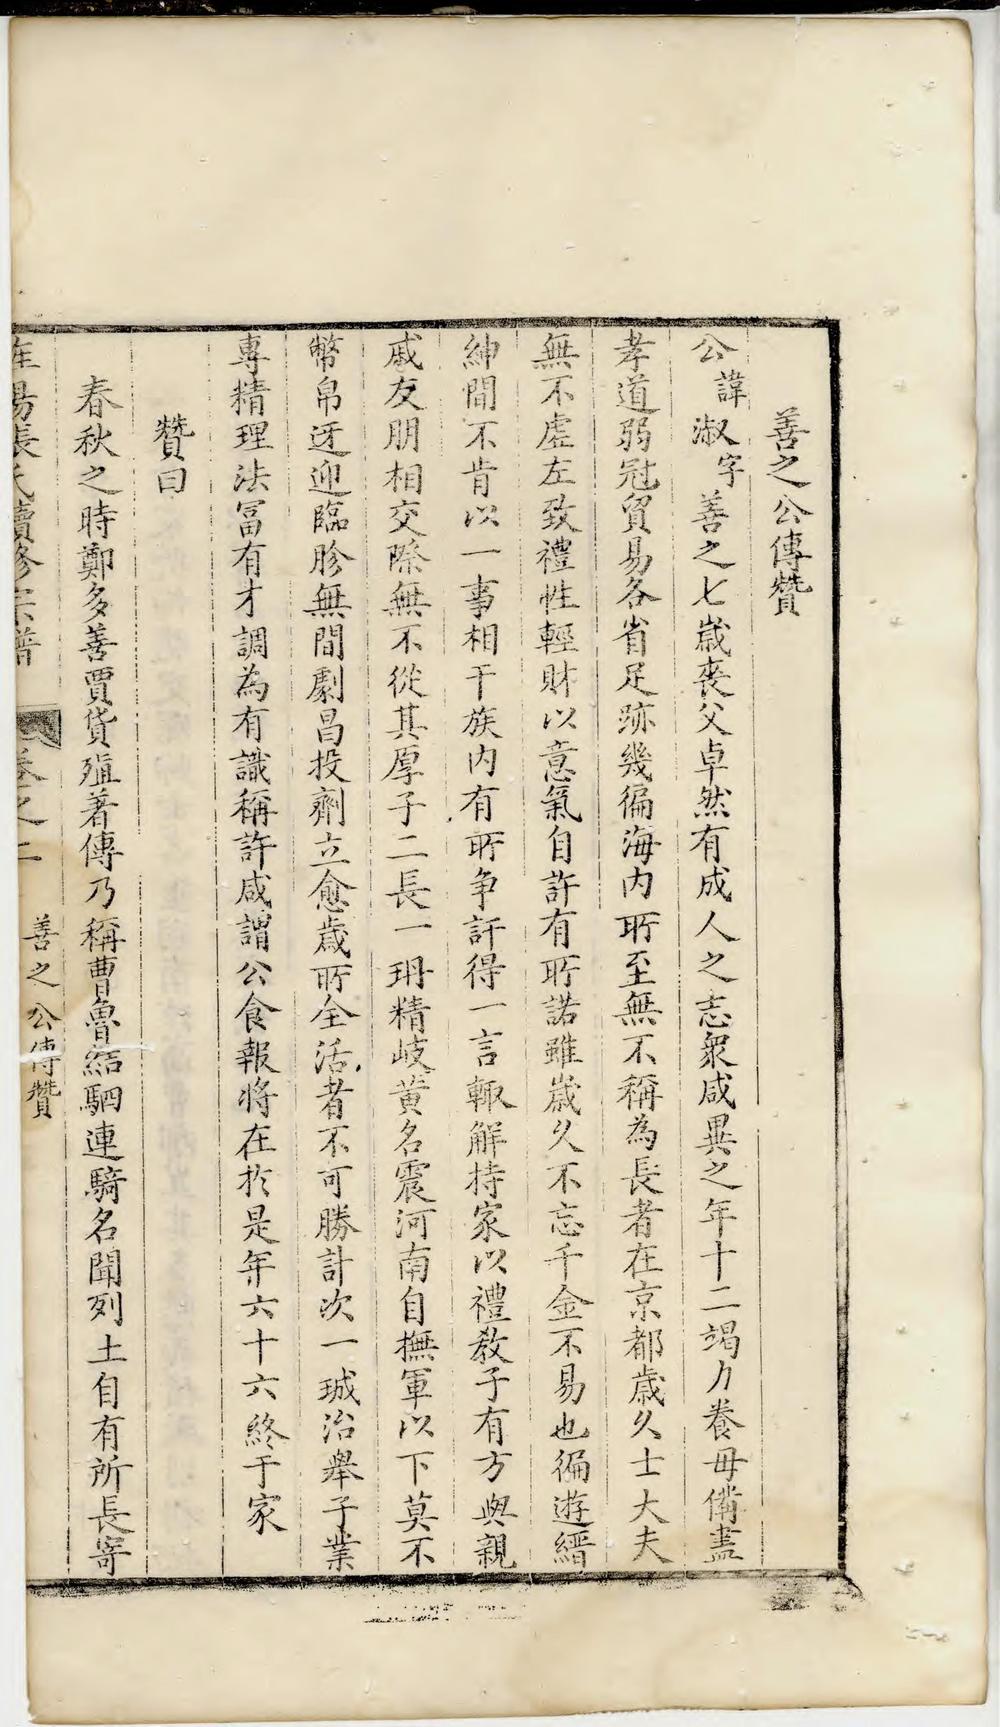 善之公傳贊
公諱淑字善之七歲喪父卓然有成人之志衆咸異之年十二竭力養母備盡
孝道弱冠貿易各省足跡幾徧海内所至無不稱為長者在京都歲久士大夫
無不虛左致禮性輕財以意氣自許有所諾雖歲久不忘千金不易也徧遊縉
紳間不肯以一事相干族内有所争訐得一言輙解持家以禮教子有方與親
戚友朋相交際無不從其厚子二長一珃精岐黄名震河南自撫軍以下莫不
幣帛迓迎臨胗無間劇昌投劑立愈歲所全活者不可勝計次一珹治舉子業
專精理法冨有才調為有識稱許咸謂公食報將在於是年六十六終于家
贊曰
春秋之時鄭多善賈貨殖著傳乃稱曹魯結駟連騎名聞列土自有所長寄
陽張氏續修宗譜 卷之二 善之公傳贊